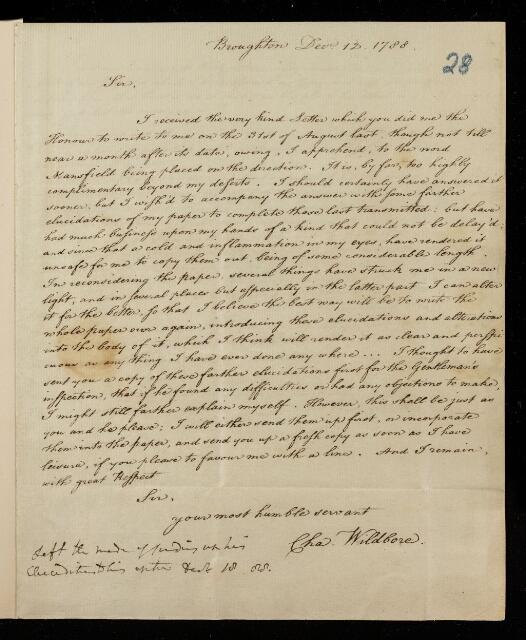 Broughton Decr 12. 1788.
28
Sir,
I received the very kind Letter which you did me the
Honour to write to me on the 31st of August last, though not till
near a month after its date, owing, I apprehend, to the word
Mansfield being placed on the direction. It is, by far, too highly
complimentary beyond my deserts. I should certainly have answered it
sooner, but I wish'd to accompany the answer with some farther
elucidations of my paper to complete those last transmitted: but have
had much business upon my hands of a kind that could not be delay'd;
and since that a cold and inflammation in my eyes, have rendered it
unsafe for me to copy them out, being of some considerable length.
In reconsidering the paper, several things have struck me in a new
light, and in several places but especially in the latter part I can alter
it for the better, so that I believe the best way will be to write the
whole paper over again, introducing these elucidations and alterations
into the body of it, which I think will render it as clear and perspi
cuous as any thing I have ever done any where ... I thought to have
sent you a copy of these farther elucidations first for the Gentleman's
inspection, that if he found any difficulties or had any objections to make,
I might still farther explain myself. However, this shall be just as
you and he please; I will either send them up first, or incorporate
them into the paper, and send you up a fresh copy as soon as I have
leisure, if you please to favour me with a line. And I remain,
with great Respect
Sir,
your most humble servant
Cha. Wildbore.
left the mode of sending up his
Elucidations to his option Decr 18 88.